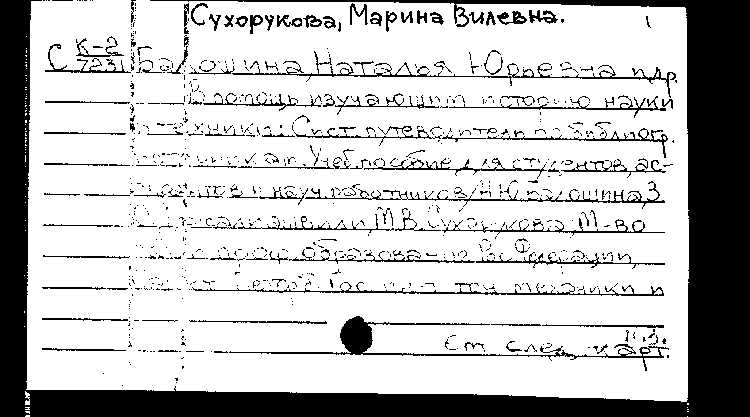 Сухорукова, Марина Вилевна. 1
С К-2/7231 Балошина, Наталья Юрьевна и др.
В помощь изучающим историю науки
и техники: Сист. путеводитель по библиогр.
источникам. Учеб. пособие для студентов, ас-
пирантов и науч. работников / Н.Ю. Балошина, З.
М.В. Сухорукова; М-во
проф. образования Рос. Федерации,
Санкт-Петерб. Гос. ин-т точ. механики и
См. след. карт.